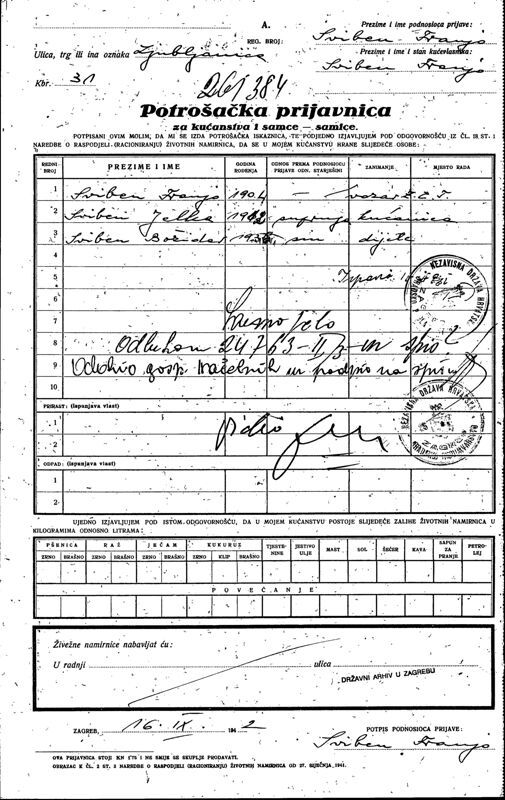 A.
REG. BROJ:
Prezime i ime podnosioca prijave:
Sviben Franjo
Ulica, trg ili ina oznaka Ljubljanica
Prezime i ime i stan kućevlasnika:
Sviben Franjo
Kbr. 31
261384
Potrošačka prijavnica
za kućanstva i samce — samice.
POTPISANI OVIM MOLIM, DA MI SE IZDA POTROŠAČKA ISKAZNICA, TE PODJEDNO IZJAVLJUJEM POD ODGOVORNOŠĆU IZ ČL. 18 ST. 1
NAREDBE O RASPODJELI (RACIONIRANJU) ŽIVOTNIH NAMIRNICA, DA SE U MOJEM KUĆANSTVU HRANE SLIJEDEĆE OSOBE:
REDNI BROJ PREZIME I IME GODINA ROĐENJA ODNOS PREMA PODNOSIOCU PRIJAVE ODN. STARJEŠINI ZANIMANJE MJESTO RADA
1 Sviben Franjo 1904 — vozar Z.E.T.
2 Sviben Jelka supruga kućanica
3 Sviben Božidar sin dijete
4
5
6
7
8 Odlukom 24763-II
9
10
NEZAVISNA DRŽAVA HRVATSKA
PRIRAST: (ispunjava vlast)
1
2
NEZAVISNA DRŽAVA HRVATSKA
ZAGREB
ODPAD: (ispunjava vlast)
1
2
UJEDNO IZJAVLJUJEM POD ISTOM ODGOVORNOŠĆU, DA U MOJEM KUĆANSTVU POSTOJE SLIJEDEĆE ZALIHE ŽIVOTNIH NAMIRNICA U
KILOGRAMIMA ODNOSNO LITRAMA:
PŠENICA RAŽ JEČAM KUKURUZ TJESTENINE JESTIVO ULJE MAST SOL ŠEĆER KAVA SAPUN ZA PRANJE PETROLEJ
ZRNO BRAŠNO ZRNO BRAŠNO ZRNO BRAŠNO ZRNO KLIP BRAŠNO
POVEĆANJE
Živežne namirnice nabavljat ću:
U radnji ulica
DRŽAVNI ARHIV U ZAGREBU
ZAGREB, 16. IX. 1942
POTPIS PODNOSIOCA PRIJAVE:
Sviben Franjo
OVA PRIJAVNICA STOJI KN 1'75 I NE SMIJE SE SKUPLJE PRODAVATI.
OBRAZAC K ČL. 2 ST. 3 NAREDBE O RASPODJELI (RACIONIRANJU) ŽIVOTNIH NAMIRNICA OD 27. SIJEČNJA 1941.